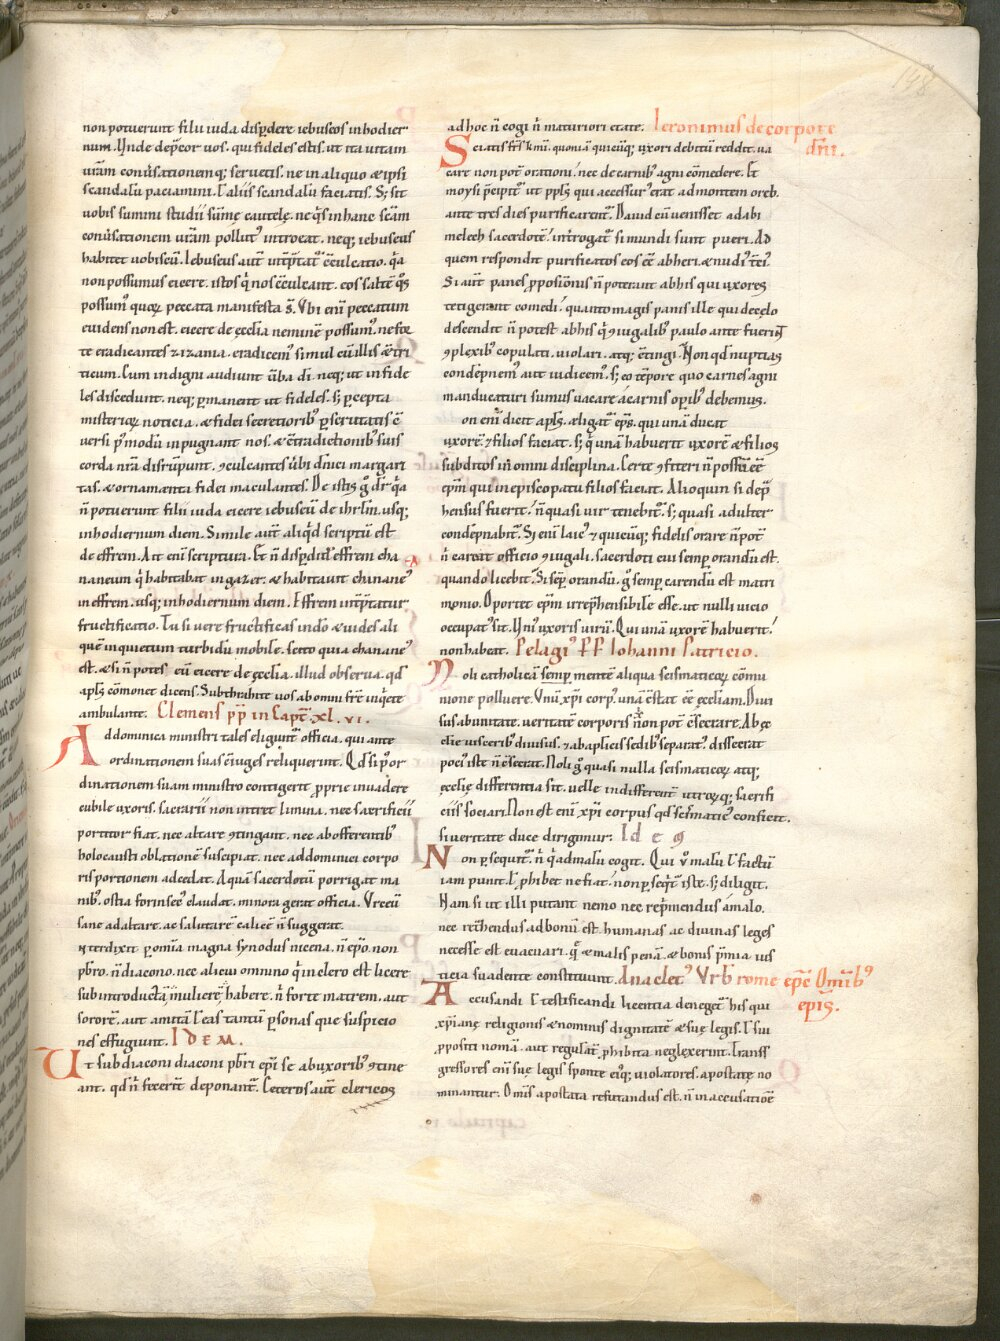 non potuerunt filii iuda disp̄dere iebuseos inhodier
num. Unde dep̄cor uos. qui fideles estis. ut ita uitam
uīam conūsationemq; seruetis. ne in aliquo & ipsi
scandalū paciamini. ł aliis scandalū faciatis. S; sit
uobis summi studii sūmę cautelę. neq̄s in hanc scām
conūsationem uīam pollutꝰ introeat. neq; iebuseus
habitet uobiscū. Iebuseus aut̄ int̄ptat̄ cēulcatio. q̄a
non possumus eicere. istos q̄ nos cēulcant. eos saltē q̄s
possumꝰ quoꝝ peccata manifesta s̄. Ubi eni peccatum
euidens non est. eicere de ęcclia neminē possumꝰ. ne for
te eradicantes zizania. eradicemꝰ simul cū illis & tri
ticum. Cum indigni audiunt ūba dī. neq; ut infide
les discedunt. neq; p̱manent ut fideles. s; p̱cepta
misterioꝝ noticia. & fidei secretioribꝰ p̱scrutatis c̄
uersi p̱ modū inpugnant nos. & c̄tradictionibꝰ suis
corda nr̄a disrūpunt. ꝯculcantes ūbi dn̄ici margari
tas. & ornamenta fidei maculantes. De istis g̊ dr̄ q̄a
n̄ potuerunt filii iuda eicere iebuseū de ihrlm̄. usq;
inhodiernum diem. Simile aut̄ aliq̄d scriptū est
de effrem. Ait eni scriptura. Et n̄ disp̱didit effrem cha
naneum q̄ habitabat ingazer. & habitauit chananeꝰ
in effrem. usq; inhodiernum diem. Effrem int̄ptatur
fructificatio. Tu si uere fructificas in dō & uides ali
quē inquietum turbidū mobile. scito quia chananeꝰ
est. & si n̄ potes eū eicere de ęcclia. illud obserua. qd
apl̄s cōmonet dicens. Subtrahite uos ab omni frē inq̇ete
ambulante. Clemens pp̄ in Capt̄. xl. vi.
Ad dominica ministri tales eligunt̄ officia. qui ante
ordinationem suas cīuges reliquerint. Qd si pꝰ or
dinationem suam ministro contigerit p̱prie inuadere
cubile uxoris. sacrarii non intret limina. nec sacrificii
portitor fiat. nec altare ꝯtingant. nec ab offerentibꝰ
holocausti oblationē suscipiat. nec ad dominici corpo
ris portionem accedat. Aquā sacerdotū porrigat ma
nibꝰ. ostia forinsec̄ claudat. minora gerat officia. Urceū
sane ad altare. ac salutarē calicē n̄ suggerat.
Nterdixit p̱ om̄ia magna synodus nicena. n̄ ep̄o. non
pb̄ro. n̄ diacono. nec alicui omnino q̇ in clero est licere
sub introductā mulierē habere. n̄ forte matrem. aut
sororē. aut amitā ł eas tantū p̱sonas que suspicio
nes effugiunt. IDEM.
Ut subdiaconi diaconi pb̄ri ep̄i se ab uxoribꝰ ꝯtine
ant. qd n̄ fecerit̄ deponant̄. Ceteros aut̄ clericos
ad hoc n̄ cogi n̄ maturiori etate. Ieronimus de corpore
dn̄i.
Sciatis fr̄s kmī. quoniā quicūq; uxori debitū reddit. ua
care non pot̄ orationi. nec de carnibꝰ agni comedere. Et
moysi p̄cipit̄ ut pplꝰ qui accessurꝰ erat ad montem oreb.
ante tres dies purificarent̄. Dauid cū uenisset ad abi
melech sacerdotē. int̄rogatꝰ si mundi sunt pueri. Ad
quem respondit purificatos eos cē ab heri. & nudiꝰ t̄ciꝰ.
Si aut̄ panes p̱posiōnis n̄ poterant ab his qui uxores
tetigerant comedi. quanto magis panis ille qui de cęlo
descendit n̄ potest ab his q̇ ꝯiugalibꝰ paulo ante fuerīt
ꝯplexibꝰ copulati. uiolari. atq; c̄tingi. Non qd nuptias
condēpnemꝰ aut iudicemꝰ. s; eo tēpore quo carnes agni
manducaturi sumus uacare acarnis op̱ibꝰ debemus.
on eni dicit apl̄s. & ligat̄ ep̄s. qui unā ducat
uxorē. & filios faciat. s; q̇ unā habuerit uxorē & filios
subditos in omni disciplina. Certe ꝯfiteri n̄ possūt eē
ep̄m qui in episcopatu filios faciat. Alioquin si dep̄
hensus fuerit. n̄ quasi uir tenebit̄. s; quasi adulter
condēpnabit̄. S; eni laicꝰ & quicūq; fidelis orare n̄ pot̄
n̄ careat officio ꝯiugali. sacerdoti cui semp̱ orandū est.
quando licebit̄. Si semp̱ orandū. g̊ semp̱ carendū est matri
monio. Oportet ep̄m irrep̱hensibile esse. ut nulli uicio
occupatꝰ sit. Uniꝰ uxoris uirū. Qui unā uxorē habuerit.
non habeat. Pelagiꝰ PP Iohanni Patricio.
Noli catholicā semp̱ mentē aliqua scismaticoꝝ cōmu
nione polluere. Unū xpī corpꝰ. unā c̄stat cē ęccliam. Diui
sus ab unitate. ueritatē corporis n̄ pot̄ c̄secrare. Ab ęc
clię uisceribꝰ diuisus. & ab aplicis sedibꝰ separatꝰ. dissecrat
pociꝰ iste n̄ c̄secrat. Noli g̊ quasi nulla scismaticoꝝ atq;
ęcclię differentia sit. uelle indifferent̄ utroꝝq; sacrifi
ciis sociari. Non est eni xpī corpus qd scismaticꝰ conficit.
si ueritate duce dirigimur. Idem
Non p̱sequit̄. n̄ q̇ ad malū cogit. Qui ṽ malū ł factū
iam punit. ł phibet ne fiat. non p̱seq̄t iste. s; diligit.
Nam si ut illi putant nemo nec rep̱mendus a malo.
nec ret̄hendus ad bonū est. humanas ac diuinas leges
necesse est euacuari. q̄ & malis penā. & bonis p̄mia ius
ticia suadente constituunt. Anacletꝰ Urbꝰ rome epc̄ Omībꝰ
epis.
Accusandi ł testificandi licentia deneget̄ his qui
xpiane religionis & nominis dignitatē & suę legis. ł sui
p̱positi normā. aut regulat̄ p̱hibita neglexerint. Transs
gressores eni suę legis sponte eiꝰq; uiolatores. apostatę no
minantur. Om̄is apostata refutandus est. n̄ in accusatioē